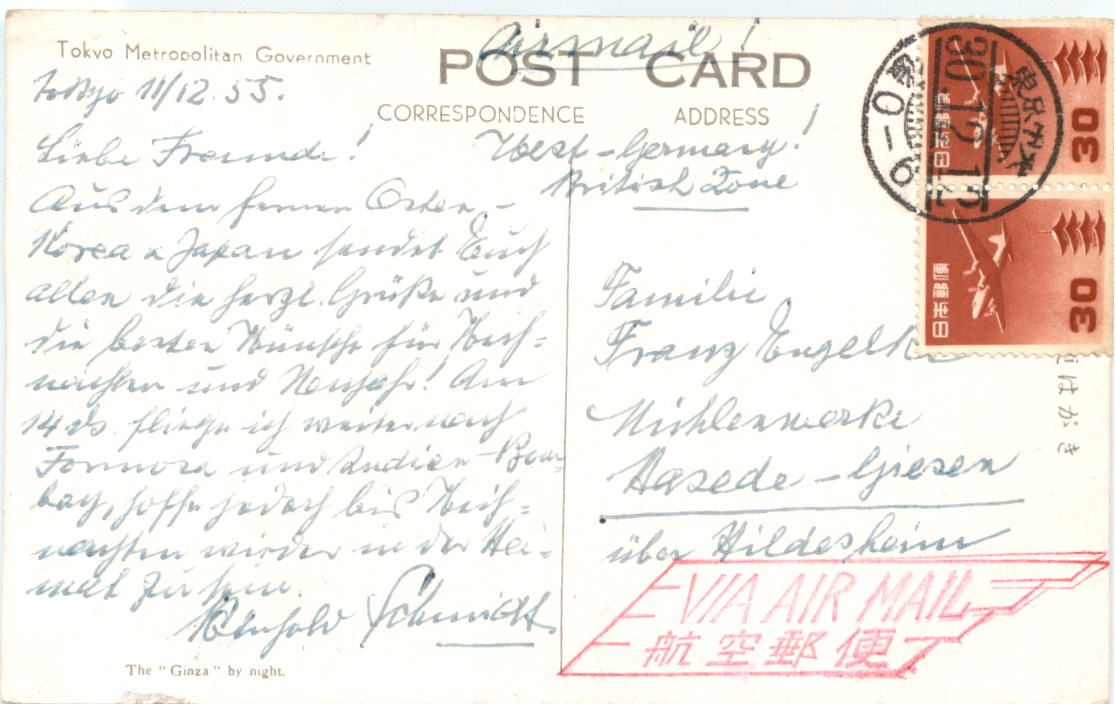 Tokyo Metropolitan Government
Airmail!
POST CARD
CORRESPONDENCE
ADDRESS
Tokyo 11/12.55.
Liebe Freunde!
Aus dem fernen Osten –
Korea u Japan sendet Euch
allen die herzl. Grüße und
die besten Wünsche für Weih=
nachten und Neujahr! Am
14 ds. fliege ich weiter nach
Formosa und Indien – Bom-
bay, hoffe jedoch bis Weih=
nachten wieder in der Hei=
mat zu sein.
Reinhold Schmidt.
The "Ginza" by night.
West – Germany!
British Zone
Familie
Franz Engelke
Mühlenwerke
Hasede – Giesen
über Hildesheim
VIA AIR MAIL
航空郵便
30
日本郵便
30
日本郵便
30.12.13
0–6
便はがき